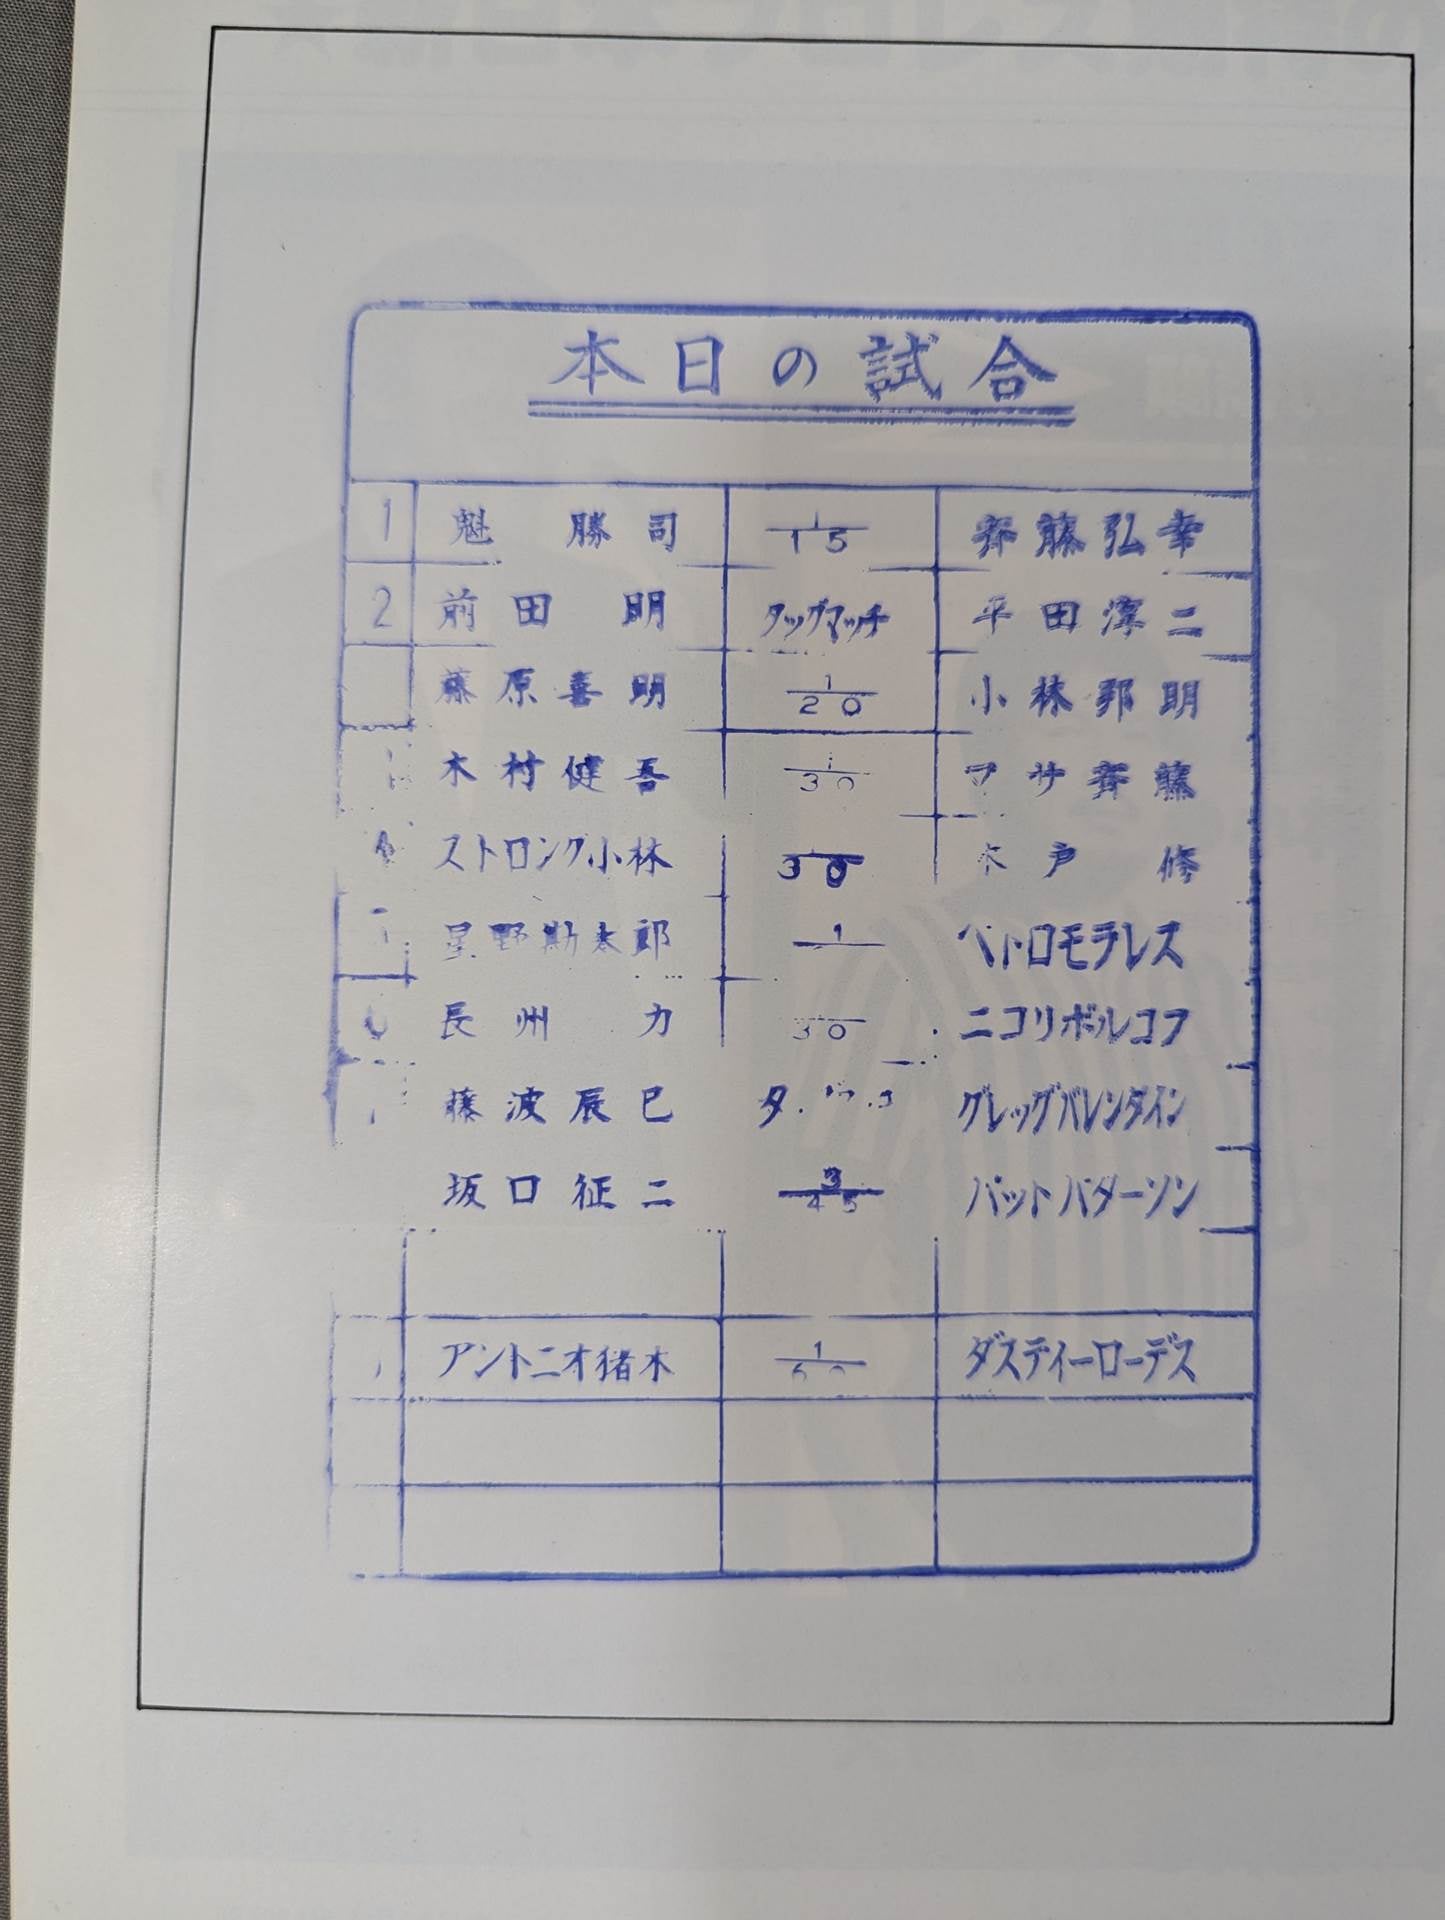 本日の試合
1 魁 勝司 1/15 斉藤弘幸
2 前田 明 タッグマッチ 平田淳二
藤原喜明 1/20 小林邦明
木村健吾 1/30 マサ斉藤
ストロング小林 30 木戸 修
星野勘太郎 1 ペトロモラレス
長州 力 30 ニコリボルコフ
藤波辰巳 グレッグバレンタイン
坂口征二 3/45 パットパターソン
アントニオ猪木 1/60 ダスティーローデス